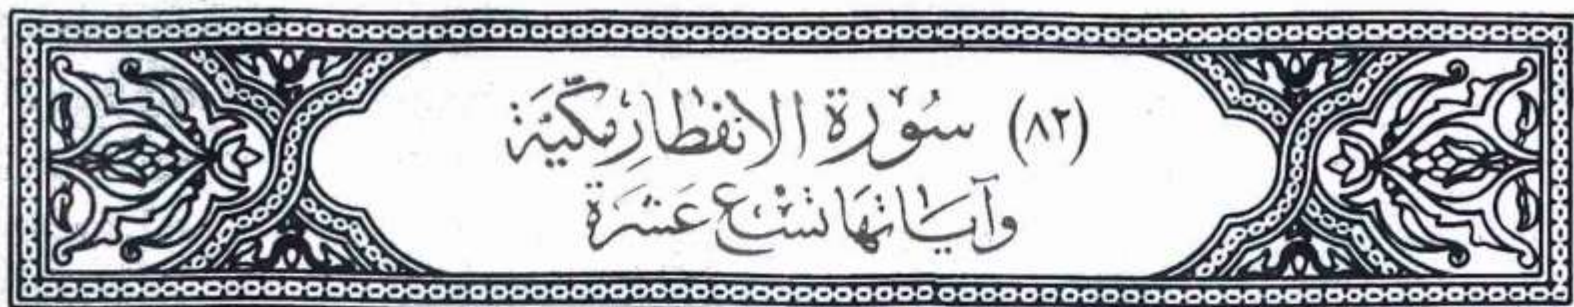 (٨٢) سُورة الانفطارِ مكيَّة
وآياتهَا تسْع عَشرَة